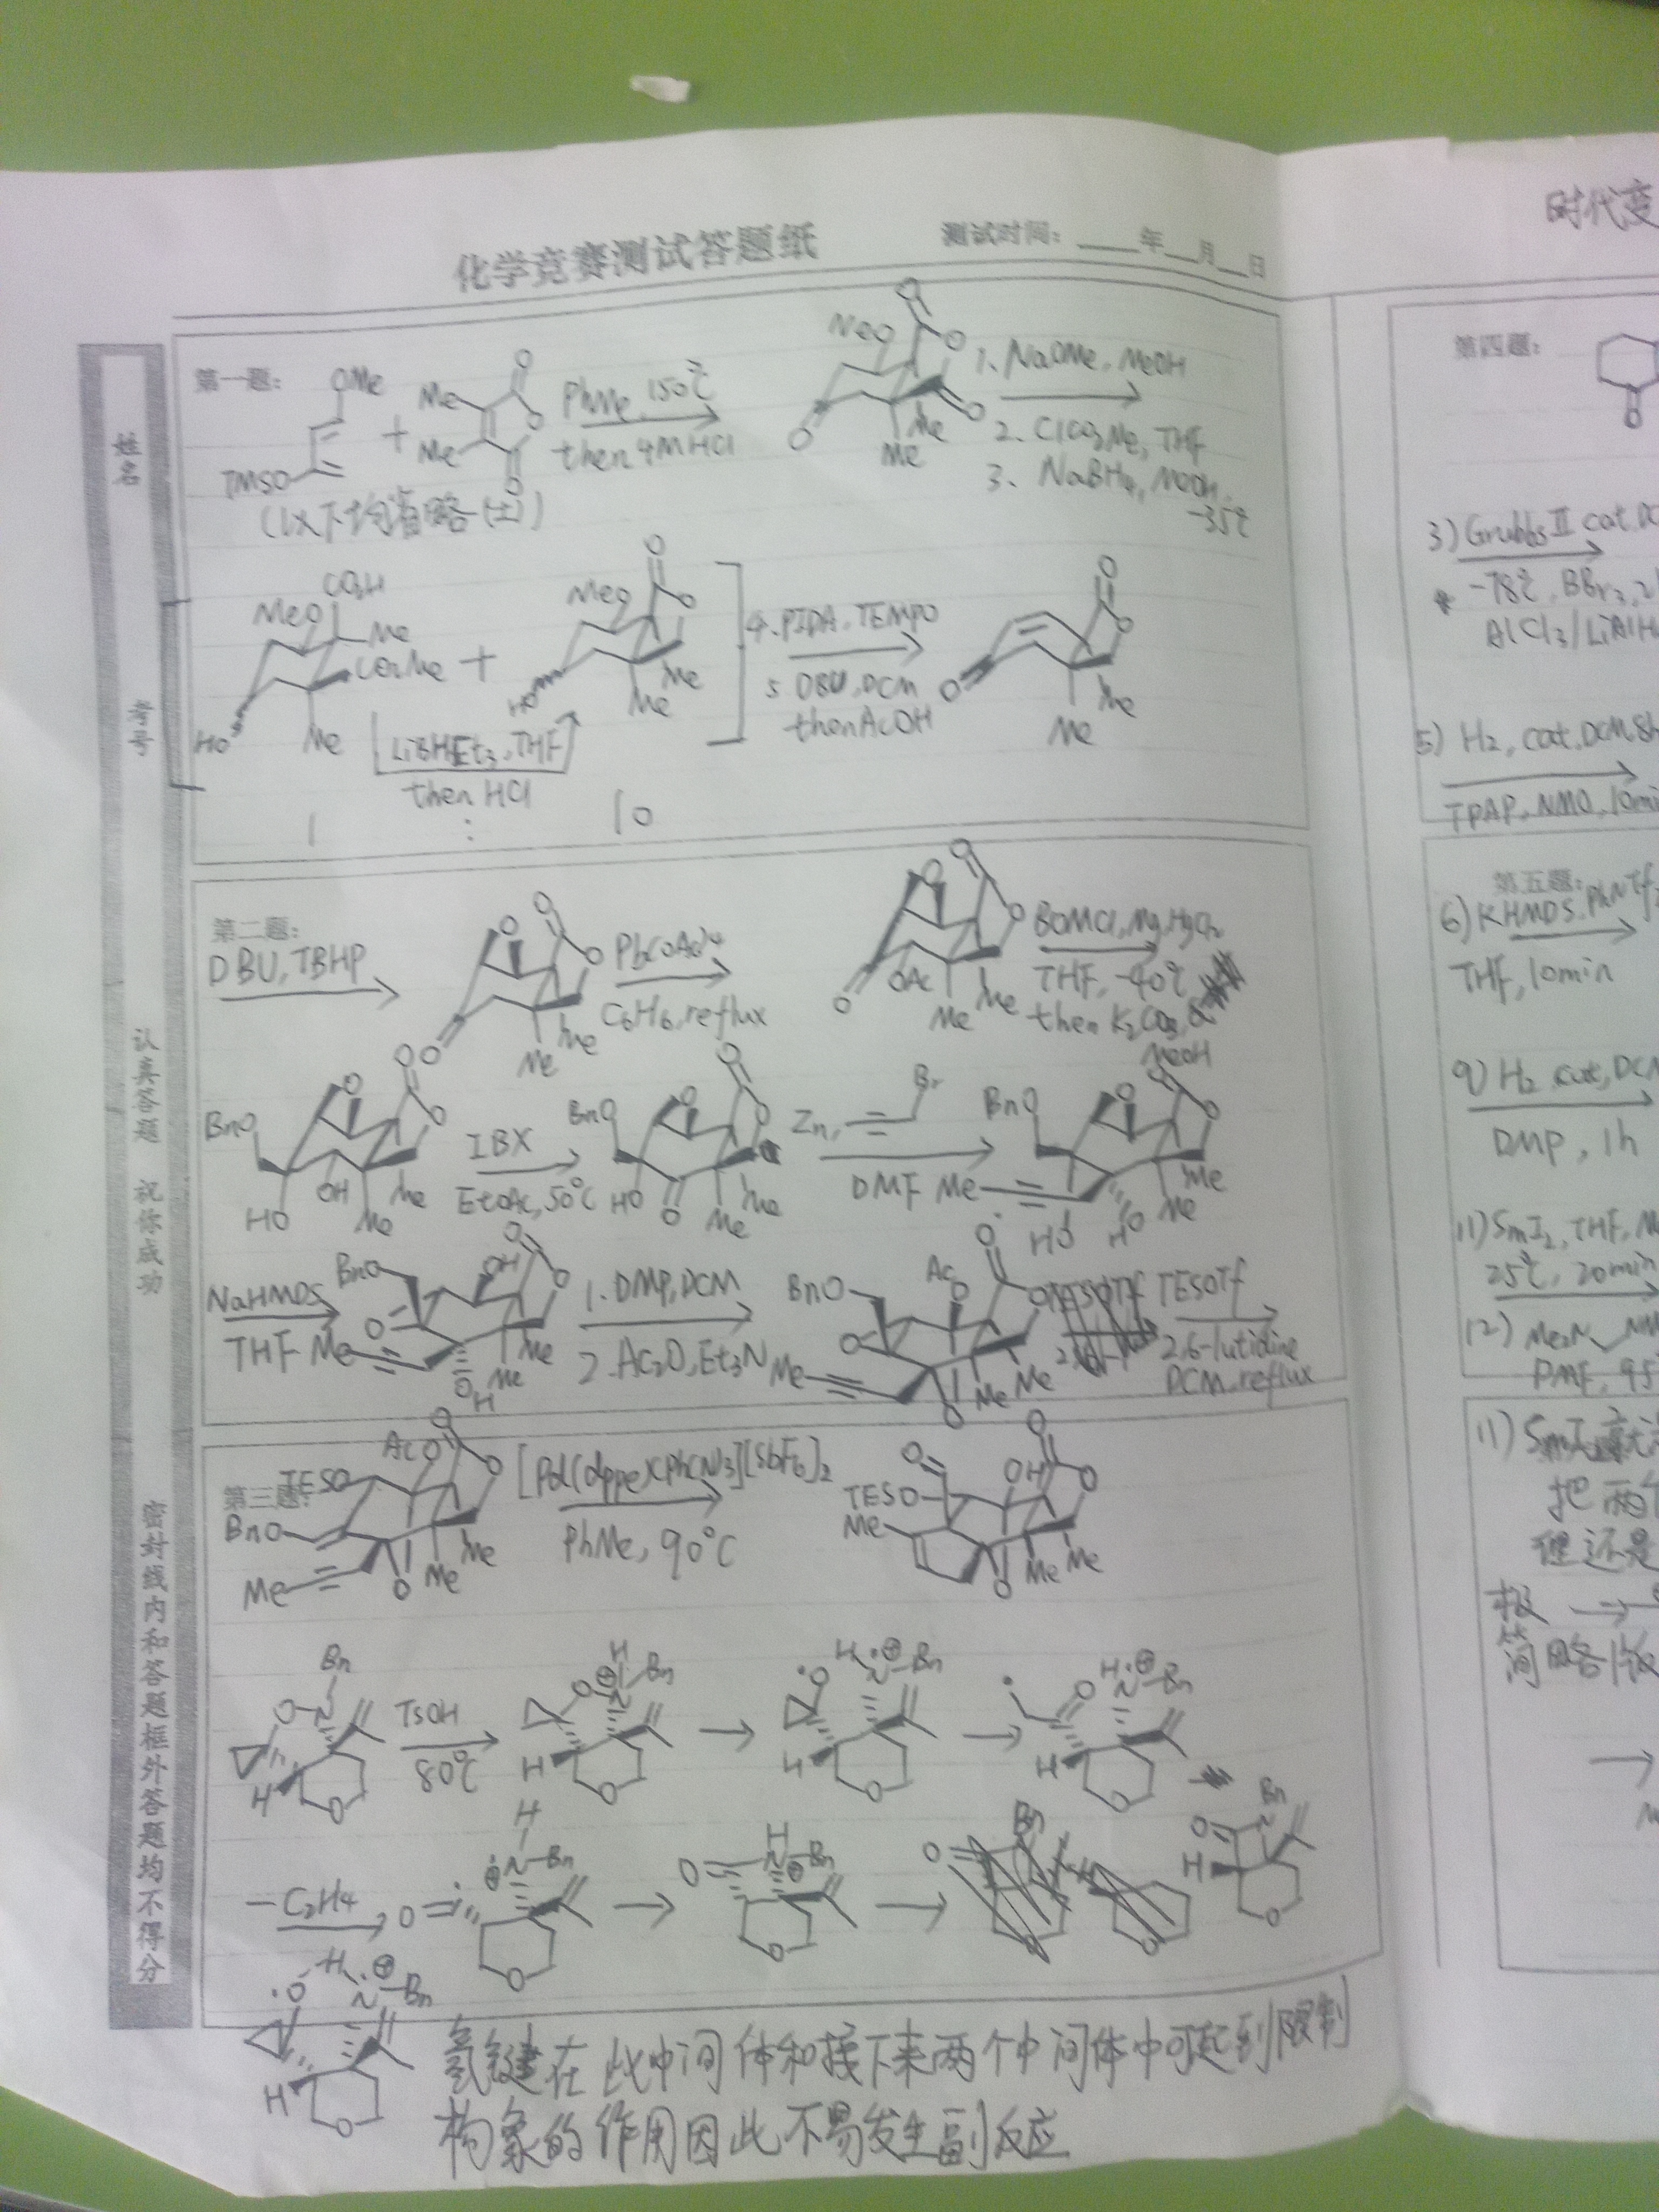 时代变
化学竞赛测试答题纸
测试时间：____年__月__日
姓名
考号
认真答题 祝你成功
密封线内和答题框外答题均不得分
第一题：
OMe
TMSO
+
Me
Me
O
O
O
PhMe, 150℃
then 4M HCl
MeO
O
O
O
O
Me
Me
1. NaOMe, MeOH
2. ClCO2Me, THF
3. NaBH4, MeOH,
-35℃
(以下均省略(±))
MeO
CO2H
Me
CO2Me
HO
Me
+
MeO
O
O
HO
Me
Me
LiBHEt3, THF
then HCl
1 : 10
4. PIDA, TEMPO
5. DBU, DCM
then AcOH
O
O
O
Me
Me
第二题：
DBU, TBHP
O
O
O
O
Me
Me
Pb(OAc)4
C6H6, reflux
O
O
O
O
OAc
Me
Me
BOMCl, Mg, HgCl2
THF, -40℃
then K2CO3,
MeOH
BnO
O
O
O
OH
HO
Me
Me
IBX
EtOAc, 50℃
BnO
O
O
O
HO
O
Me
Me
Zn,
Br
DMF
BnO
O
O
O
Me
HO
HO
Me
Me
NaHMDS
THF
BnO
OH
O
O
O
Me
OH
Me
Me
1. DMP, DCM
2. Ac2O, Et3N
BnO
AcO
O
O
O
Me
O
Me
Me
TESOTf
2,6-lutidine
DCM, reflux
第三题：
TESO
AcO
O
O
BnO
Me
O
Me
Me
[Pd(dppe)(PhCN)3][SbF6]2
PhMe, 90℃
O
OH
O
O
TESO
Me
O
Me
Me
Bn
O-N
H
O
TsOH
80℃
H
O
N
Bn
H
O
O
H
N
Bn
H
O
O
H
N
Bn
H
O
-C2H4
H
O
N-Bn
O
O
H
N
Bn
O
Bn
O
N
H
O
O
H
N
Bn
H
O
氢键在此中间体和接下来两个中间体中可起到限制
构象的作用因此不易发生副反应
第四题：
O
3) Grubbs II cat. DC
* -78℃, BBr3, 2
AlCl3/LiAlH
5) H2, cat. DCM 8h
TPAP, NMO, 10min
第五题：
6) KHMDS, PhNTf2
THF, 10min
9) H2 cat, DCM
DMP, 1h
11) SmI2, THF, M
25℃, 20min
12) Me2N NM
DMF, 95
把两个
但还是
简略